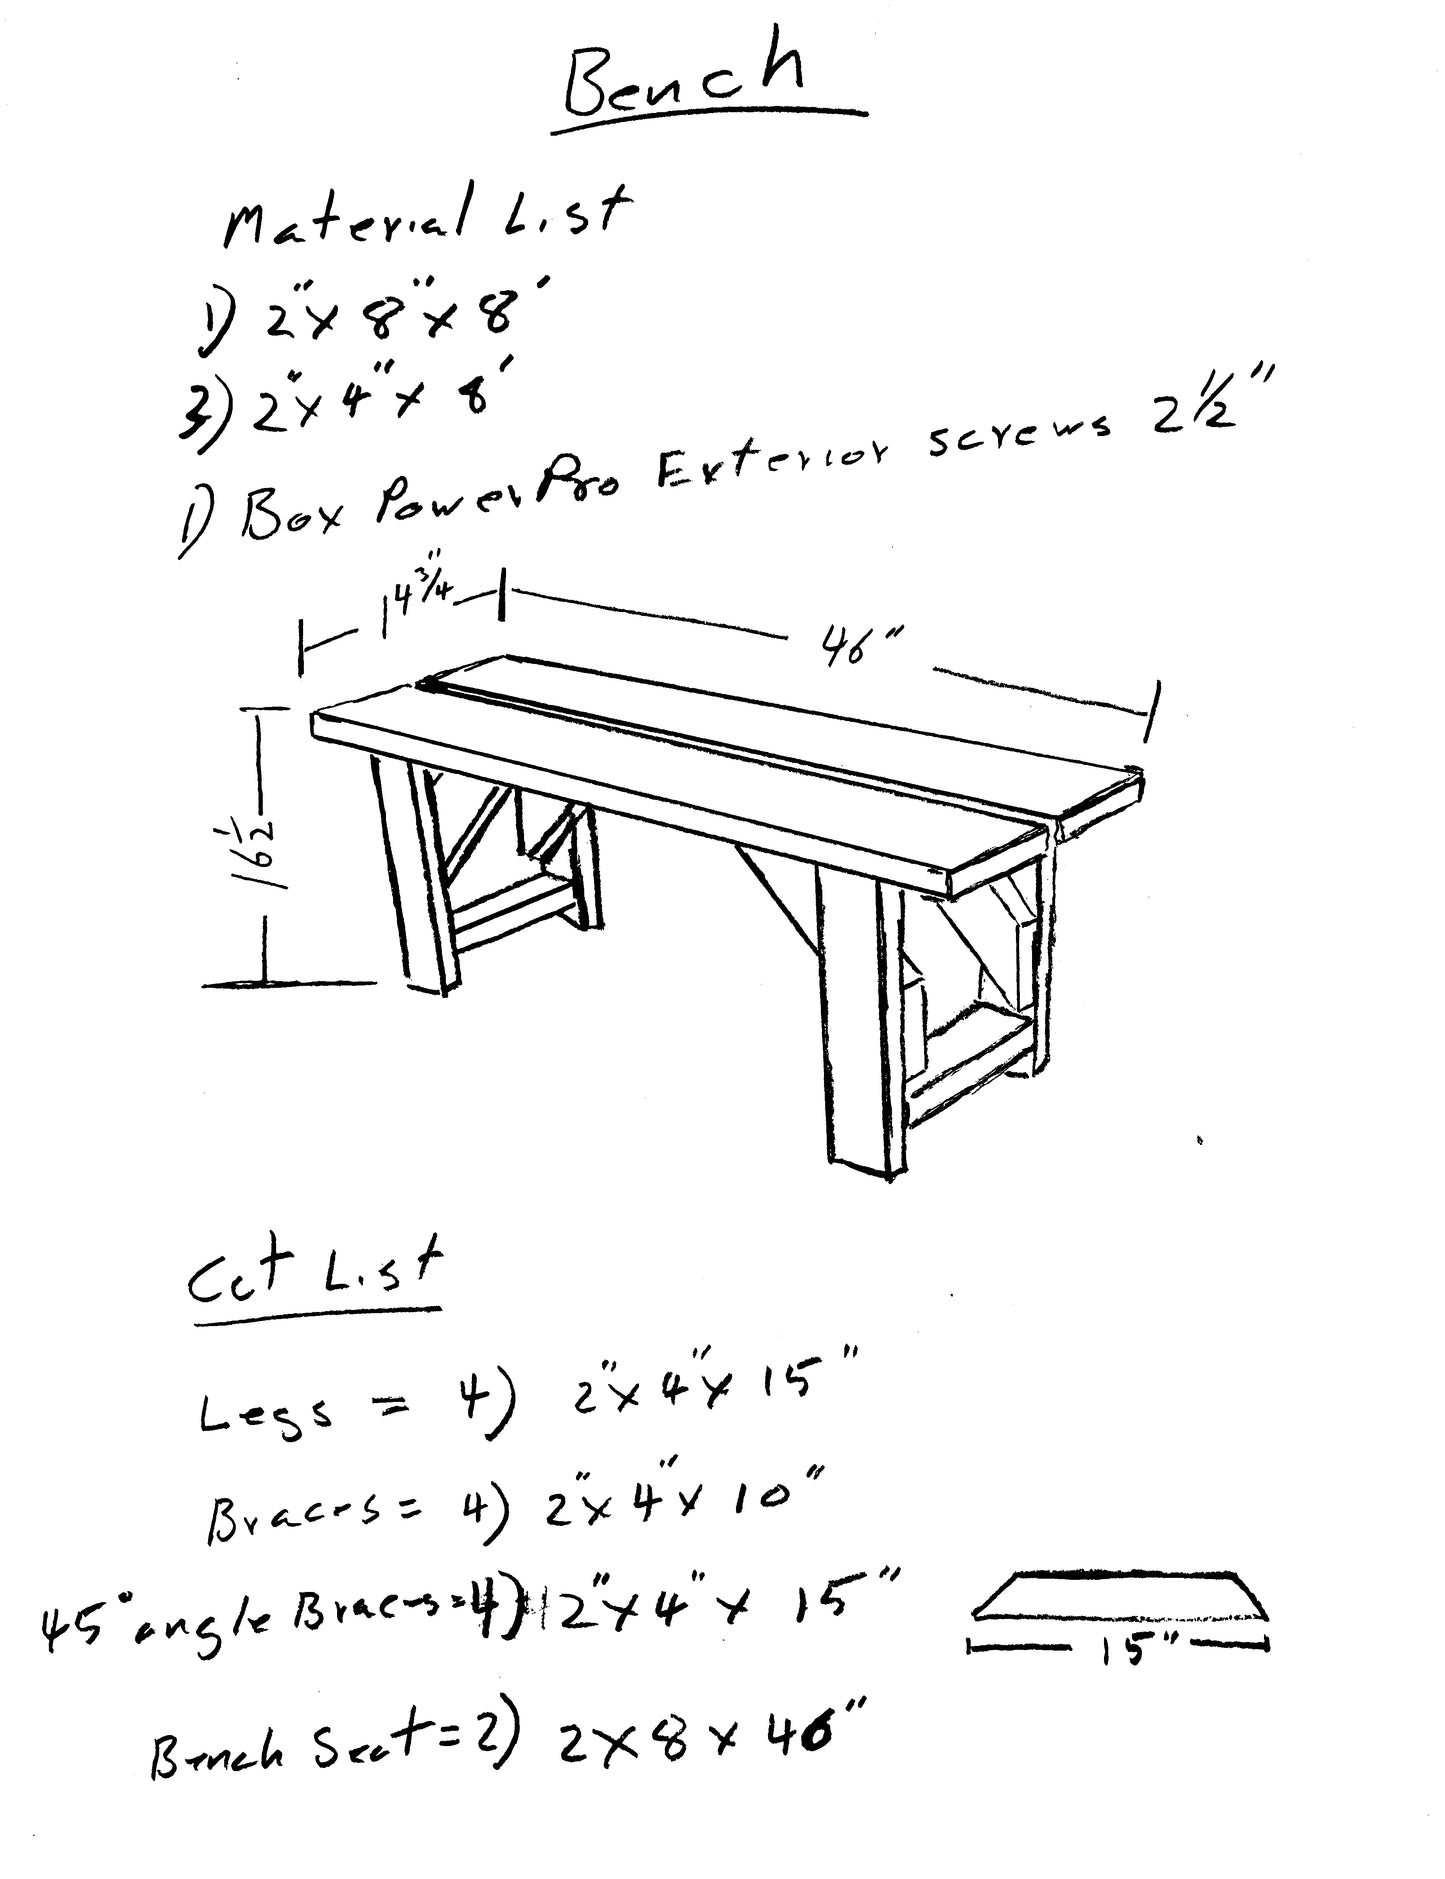 Bench
Material List
1) 2" x 8" x 8'
3) 2" x 4" x 8'
1) Box PowerPro Exterior screws 2 1/2"
14 3/4"
46"
16 1/2
Cut List
Legs = 4) 2" x 4" x 15"
Braces = 4) 2" x 4" x 10"
45° angle Braces = 4) 2" x 4" x 15"
15"
Bench Seat = 2) 2 x 8 x 46"